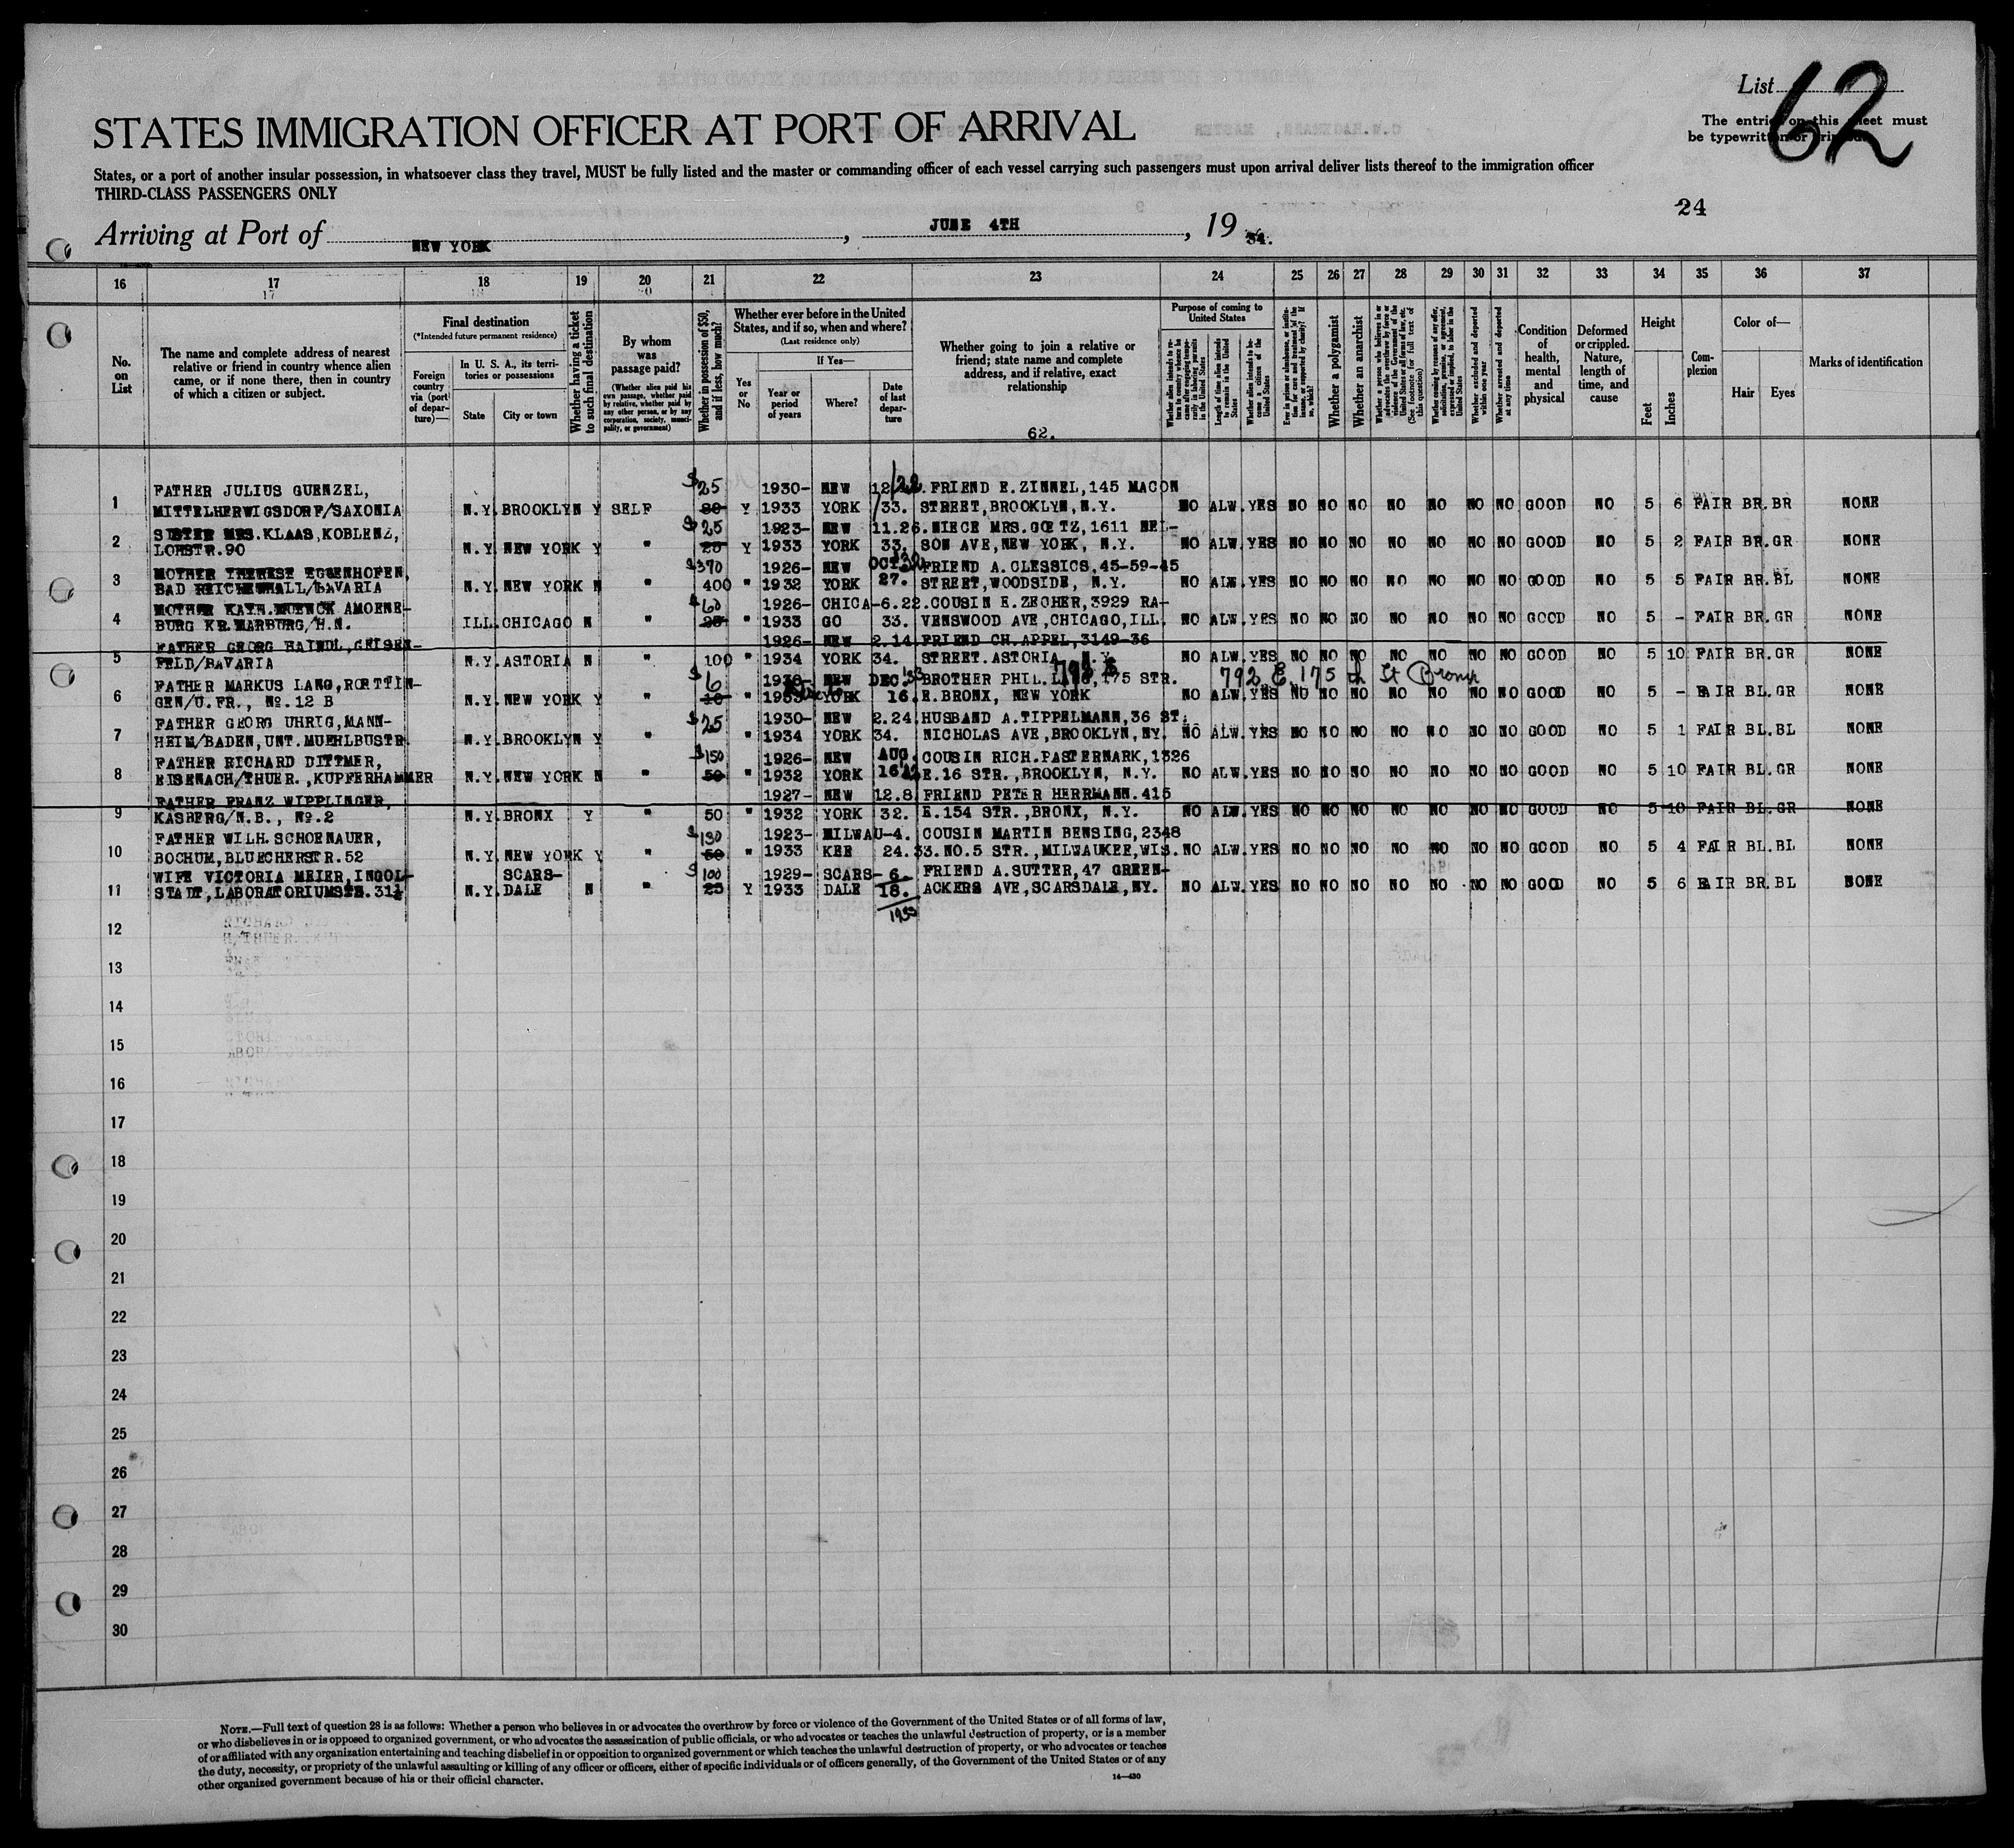 List 62
STATES IMMIGRATION OFFICER AT PORT OF ARRIVAL
The entries on this sheet must
be typewritten or printed.
States, or a port of another insular possession, in whatsoever class they travel, MUST be fully listed and the master or commanding officer of each vessel carrying such passengers must upon arrival deliver lists thereof to the immigration officer
THIRD-CLASS PASSENGERS ONLY
24
Arriving at Port of NEW YORK, JUNE 4TH, 19 34.
16 17 18 19 20 21 22 23 24 25 26 27 28 29 30 31 32 33 34 35 36 37
No. on List
The name and complete address of nearest relative or friend in country whence alien came, or if none there, then in country of which a citizen or subject.
Final destination
(*Intended future permanent residence)
Foreign country via (port of departure)—
In U. S. A., its territories or possessions
State
City or town
Whether having a ticket to such final destination
By whom was passage paid?
(Whether alien paid his own passage, whether paid by relative, whether paid by any other person, or by any corporation, society, municipality, or government)
Whether in possession of $50, and if less, how much?
Whether ever before in the United States, and if so, when and where?
(Last residence only)
Yes or No
If Yes—
Year or period of years
Where?
Date of last departure
Whether going to join a relative or friend; state name and complete address, and if relative, exact relationship
62.
Purpose of coming to United States
Whether alien intends to return to country whence he came after engaging temporarily in laboring pursuits in the United States
Length of time alien intends to remain in the United States
Whether alien intends to become a citizen of the United States
Ever in prison or almshouse, or institution for care and treatment of the insane, or supported by charity? If so, which?
Whether a polygamist
Whether an anarchist
Whether a person who believes in or advocates the overthrow by force or violence of the Government of the United States or all forms of law, etc. (See footnote for full text of this question)
Whether coming by reasons of any offer, solicitation, promise, or agreement, expressed or implied, to labor in the United States
Whether excluded and deported within one year
Whether arrested and deported at any time
Condition of health, mental and physical
Deformed or crippled. Nature, length of time, and cause
Height
Feet
Inches
Complexion
Color of—
Hair
Eyes
Marks of identification
FATHER JULIUS GUENZEL, $25 1930- NEW 12/22. FRIEND E.ZINNEL,145 MACON
1 MITTELHERWIGSDORF/SAXONIA N.Y. BROOKLYN Y SELF Y 1933 YORK /33. STREET,BROOKLYN,N.Y. NO ALW. YES NO NO NO NO NO NO NO GOOD NO 5 6 FAIR BR.BR NONE
SISTER MRS.KLAAS,KOBLENZ, $25 1923- NEW 11.26. NIECE MRS.GOETZ,1611 NEL-
2 LOHSTR.90 N.Y. NEW YORK Y " 25 Y 1933 YORK 33. SON AVE,NEW YORK, N.Y. NO ALW. YES NO NO NO NO NO NO NO GOOD NO 5 2 FAIR BR.GR NONE
MOTHER THERESE EGGENHOFEN, $370 1926- NEW OCT. FRIEND A.CLESSICS,45-59-45
3 BAD REICHENHALL/BAVARIA N.Y. NEW YORK N " 400 " 1932 YORK 27. STREET,WOODSIDE, N.Y. NO ALW. YES NO NO NO NO NO NO NO GOOD NO 5 5 FAIR BR.BL NONE
MOTHER KATH. AMOENE- $60 1926- CHICA-6.22. COUSIN E.ZECHER,3929 RA-
4 BURG KR.MARBURG/H.N. ILL. CHICAGO N " 25 " 1933 GO 33. VENSWOOD AVE,CHICAGO,ILL. NO ALW. YES NO NO NO NO NO NO NO GOOD NO 5 - FAIR BR.GR NONE
FATHER GEORG HAINDL,GEISEN- 1926- NEW 2.14. FRIEND CH.APPEL,3149-36
5 FELD/BAVARIA N.Y. ASTORIA N " 100 " 1934 YORK 34. STREET.ASTORIA N.Y. NO ALW. YES NO NO NO NO NO NO NO GOOD NO 5 10 FAIR BR.GR NONE
FATHER MARKUS LANG,ROETTIN- $6 1930- NEW DEC '33 BROTHER PHIL. 175 STR. 792 E. 175th St Bronx
6 GEN/U.FR., No.12 B N.Y. NEW YORK Y " 10 " 1933 YORK 16. E.BRONX, NEW YORK NO ALW. YES NO NO NO NO NO NO NO GOOD NO 5 - FAIR BL.GR NONE
FATHER GEORG UHRIG,MANN- $25 1930- NEW 2.24. HUSBAND A.TIPPELMANN,36 ST.
7 HEIM/BADEN,UNT.MUEHLBUSTR. N.Y. BROOKLYN Y " " 1934 YORK 34. NICHOLAS AVE,BROOKLYN,NY. NO ALW. YES NO NO NO NO NO NO NO GOOD NO 5 1 FAIR BL.BL NONE
FATHER RICHARD DITTMER, $150 1926- NEW AUG. COUSIN RICH.PASTERNARK,1326
8 EISENACH/THUER.,KUPFERHAMMER N.Y. NEW YORK N " 50 " 1932 YORK 16 E.16 STR.,BROOKLYN, N.Y. NO ALW. YES NO NO NO NO NO NO NO GOOD NO 5 10 FAIR BL.GR NONE
FATHER FRANZ WIPPLINGER, 1927- NEW 12.8. FRIEND PETER HERRMANN.415
9 KASBERG/N.B., No.2 N.Y. BRONX Y " 50 " 1932 YORK 32. E.154 STR.,BRONX, N.Y. NO ALW. YES NO NO NO NO NO NO NO GOOD NO 5 10 FAIR BL.GR NONE
FATHER WILH.SCHOENAUER, $130 1923- MILWAU-4. COUSIN MARTIN BENSING,2348
10 BOCHUM,BLUECHERSTR.52 N.Y. NEW YORK Y " 50 " 1933 KEE 24.33. NO.5 STR.,MILWAUKEE,WIS. NO ALW. YES NO NO NO NO NO NO NO GOOD NO 5 4 FAIR BL.BL NONE
WIFE VICTORIA MEIER,INGOL- SCARS- $100 1929- SCARS- 6 FRIEND A.SUTTER,47 GREEN-
11 STADT,LABORATORIUMSTR.31½ N.Y. DALE N " 25 Y 1933 DALE 18. ACKERS AVE,SCARSDALE,NY. NO ALW. YES NO NO NO NO NO NO NO GOOD NO 5 6 FAIR BR.BL NONE
1933
12
13
14
15
16
17
18
19
20
21
22
23
24
25
26
27
28
29
30
NOTE.—Full text of question 28 is as follows: Whether a person who believes in or advocates the overthrow by force or violence of the Government of the United States or of all forms of law,
or who disbelieves in or is opposed to organized government, or who advocates the assassination of public officials, or who advocates or teaches the unlawful destruction of property, or is a member
of or affiliated with any organization entertaining and teaching disbelief in or opposition to organized government or which teaches the unlawful destruction of property, or who advocates or teaches
the duty, necessity, or propriety of the unlawful assaulting or killing of any officer or officers, either of specific individuals or of officers generally, of the Government of the United States or of any
other organized government because of his or their official character.
14—430